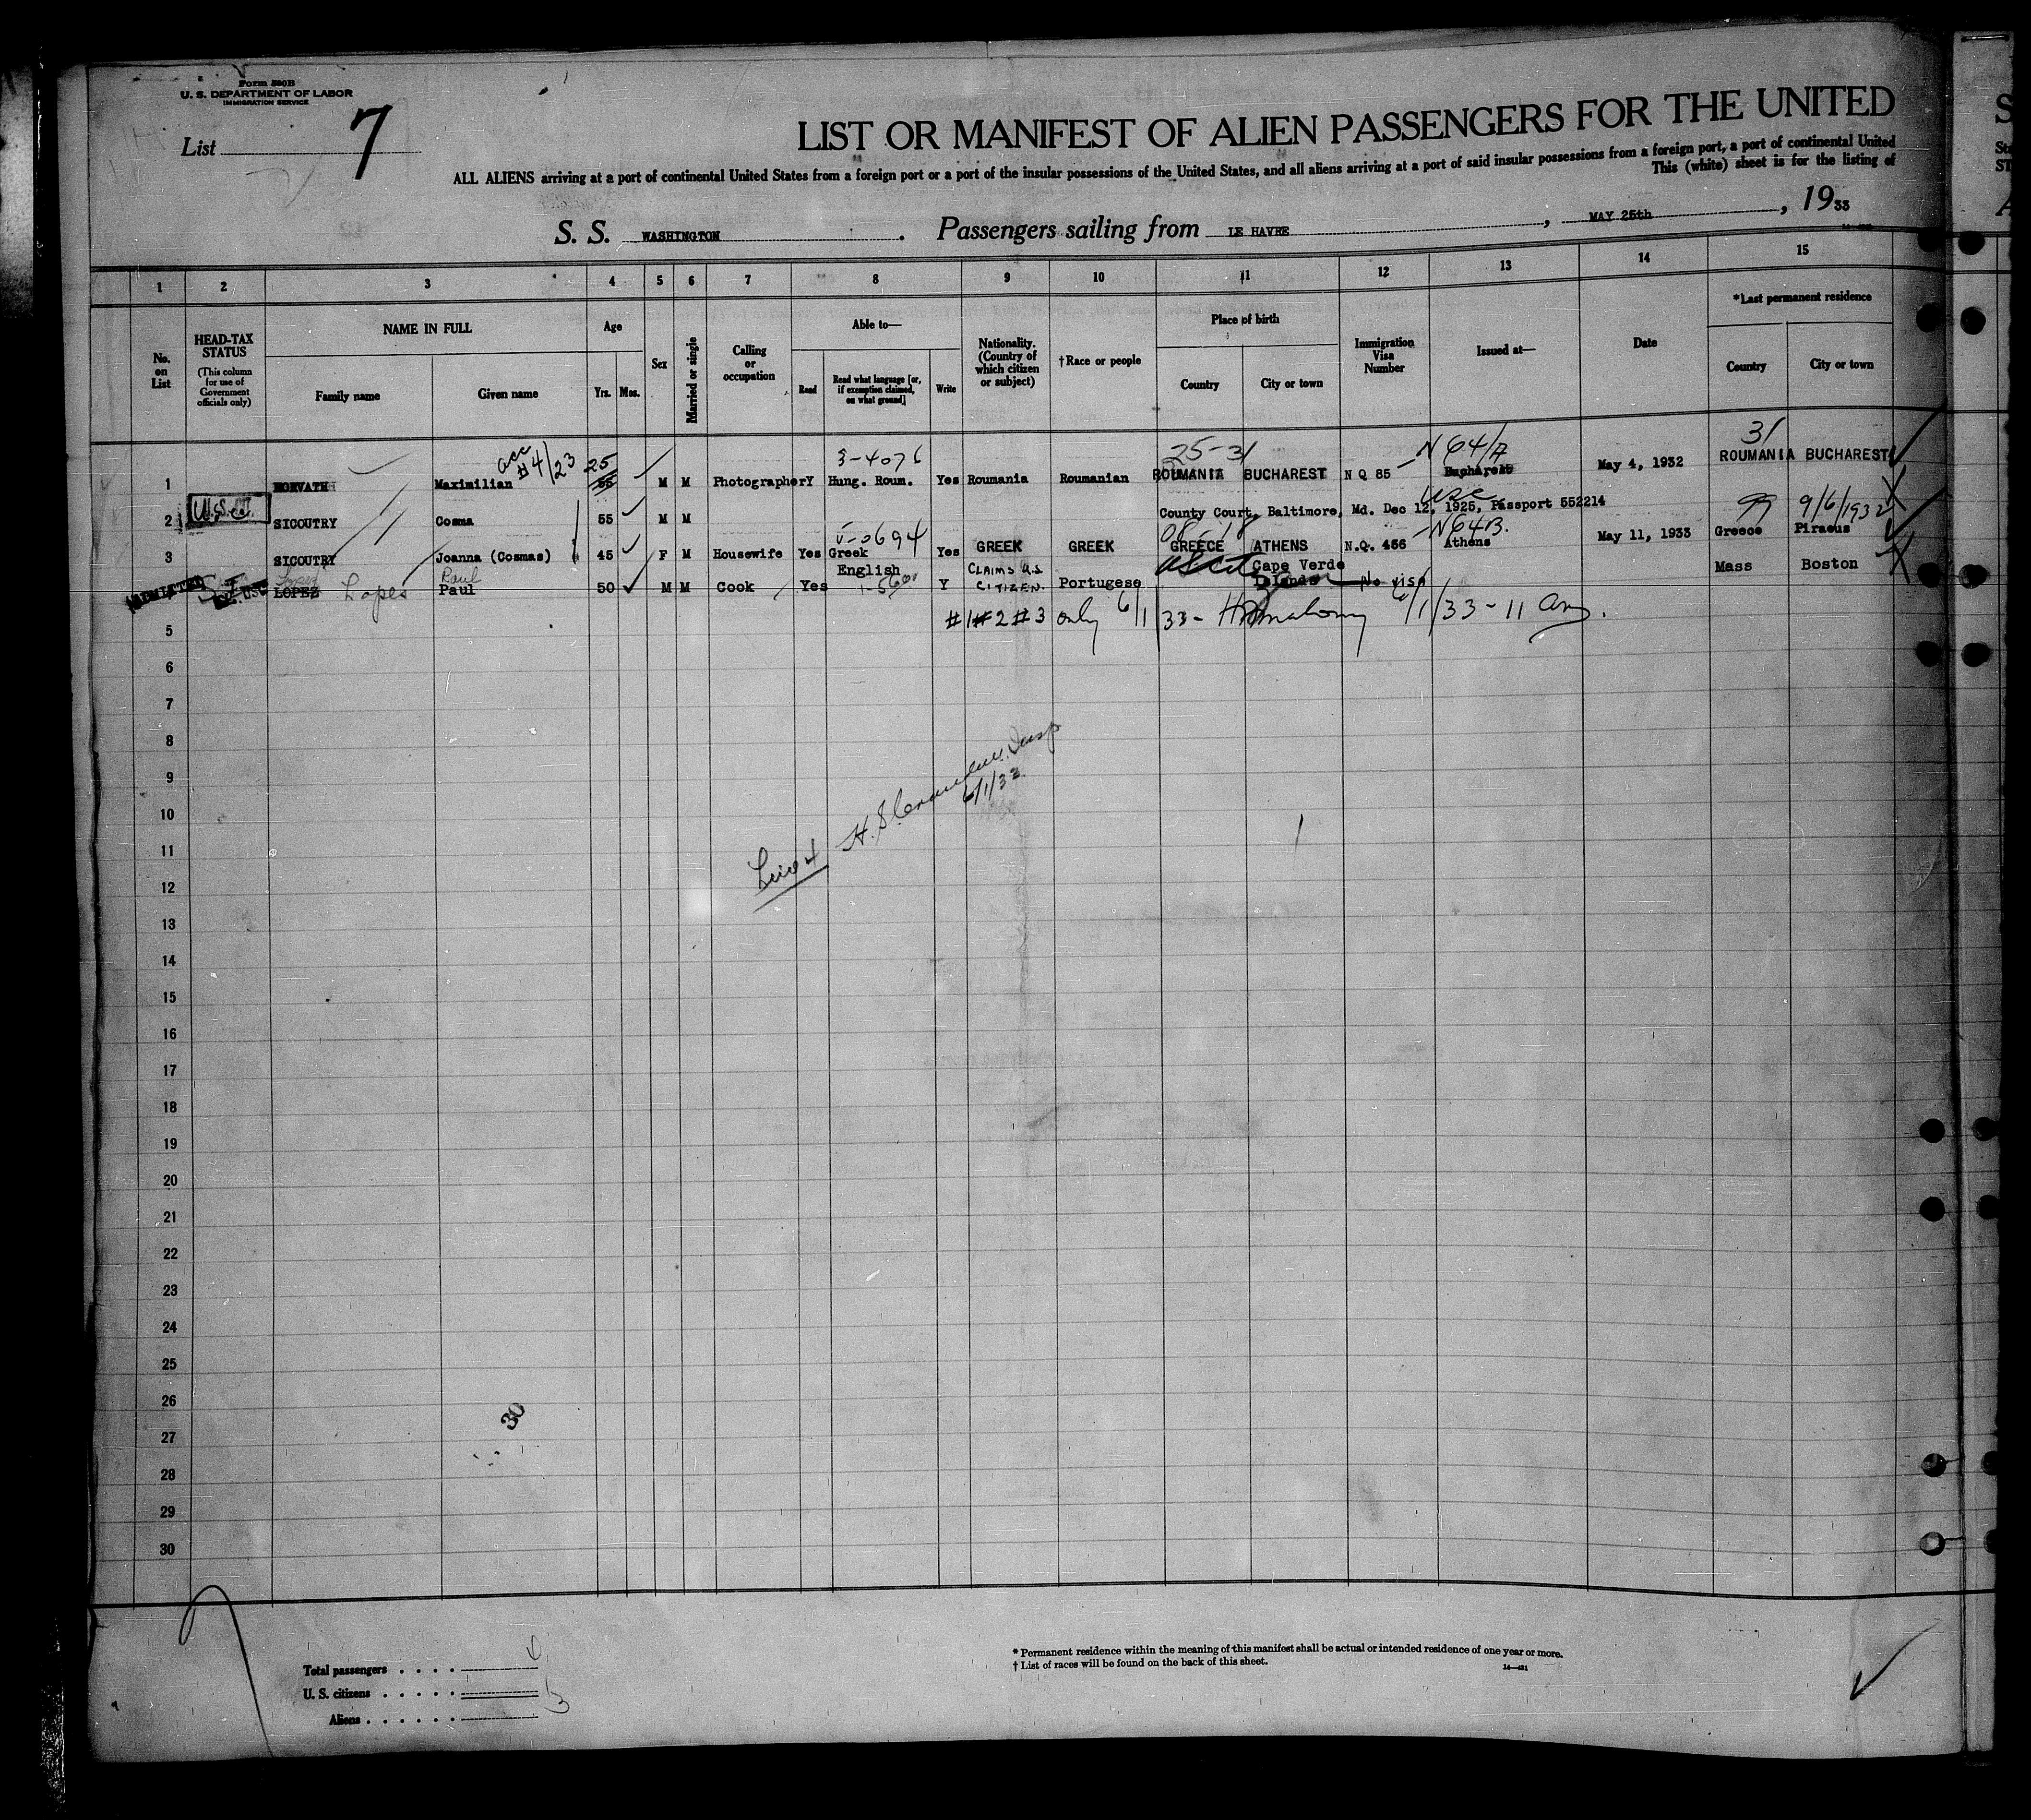 Form 500B
U. S. DEPARTMENT OF LABOR
IMMIGRATION SERVICE
List 7
LIST OR MANIFEST OF ALIEN PASSENGERS FOR THE UNITED
ALL ALIENS arriving at a port of continental United States from a foreign port or a port of the insular possessions of the United States, and all aliens arriving at a port of said insular possessions from a foreign port, a port of continental United
This (white) sheet is for the listing of
S. S. WASHINGTON. Passengers sailing from LE HAVRE, MAY 25th, 1933
1 2 3 4 5 6 7 8 9 10 11 12 13 14 15
No. on List
HEAD-TAX STATUS
(This column for use of Government officials only)
NAME IN FULL
Family name
Given name
Age
Yrs. Mos.
Sex
Married or single
Calling or occupation
Able to—
Read
Read what language [or, if exemption claimed, on what ground]
Write
Nationality. (Country of which citizen or subject)
†Race or people
Place of birth
Country
City or town
Immigration Visa Number
Issued at—
Date
*Last permanent residence
Country
City or town
acc #4/23 25 3-4076 25-31 N 64/A 31
1 HORVATH Maximilian 55 M M Photographer Y Hung. Roum. Yes Roumania Roumanian ROUMANIA BUCHAREST N Q 85 Bucharest May 4, 1932 ROUMANIA BUCHAREST
U.S.C. USC
2 SICOUTRY Cosma 55 M M County Court, Baltimore, Md. Dec 12, 1925, Passport 552214 99 9/6/1932
V-0694 08-18 N64B.
3 SICOUTRY Joanna (Cosmas) 45 F M Housewife Yes Greek Yes GREEK GREEK GREECE ATHENS N.Q. 456 Athens May 11, 1933 Greece Piraeus
ADMITTED USC Lopez Paul English CLAIMS U.S. CITIZEN. Cape Verde Islands Mass Boston
LOPEZ Lopes Paul 50 M M Cook Yes 1-560 Y Portugese No visa
#1#2#3 only 6/1/33- 6/1/33-11 am.
5
6
7
8
9
10
11
12
13
14
15
16
17
18
19
20
21
22
23
24
25
26
27
28
29
30
Line 4 Insp
6/1/33
30
Total passengers
U. S. citizens
Aliens 3
* Permanent residence within the meaning of this manifest shall be actual or intended residence of one year or more.
† List of races will be found on the back of this sheet.
14—421